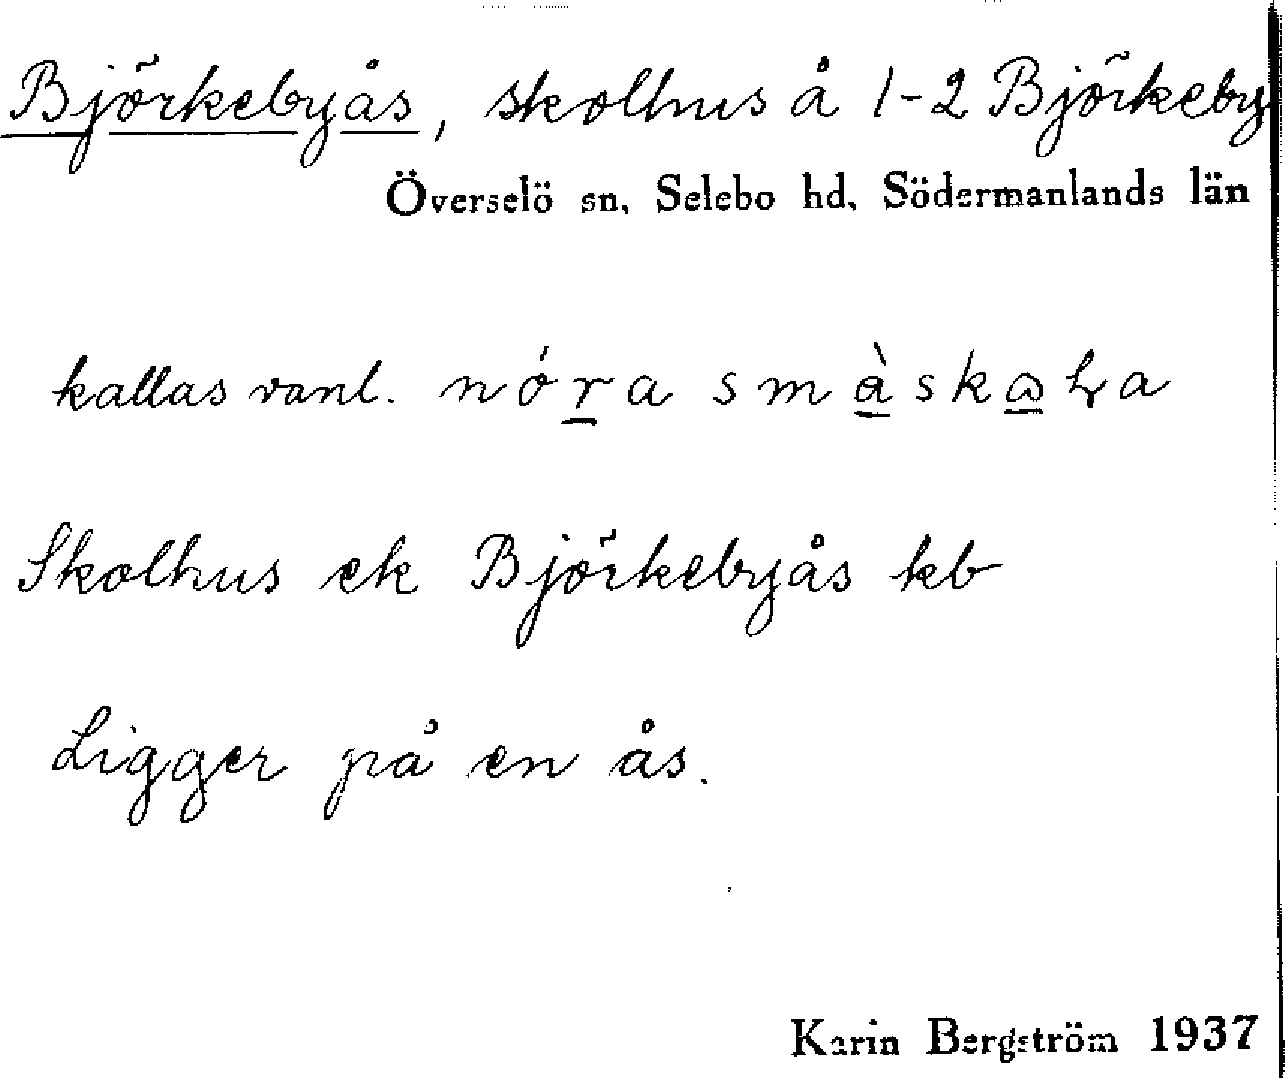 Björkebyås, skolhus å 1-2 Björkeby
Överselö sn, Selebo hd, Södermanlands län
kallas vanl.
Skolhus ek Björkebyås kb
Ligger på en ås.
Karin Bergström 1937